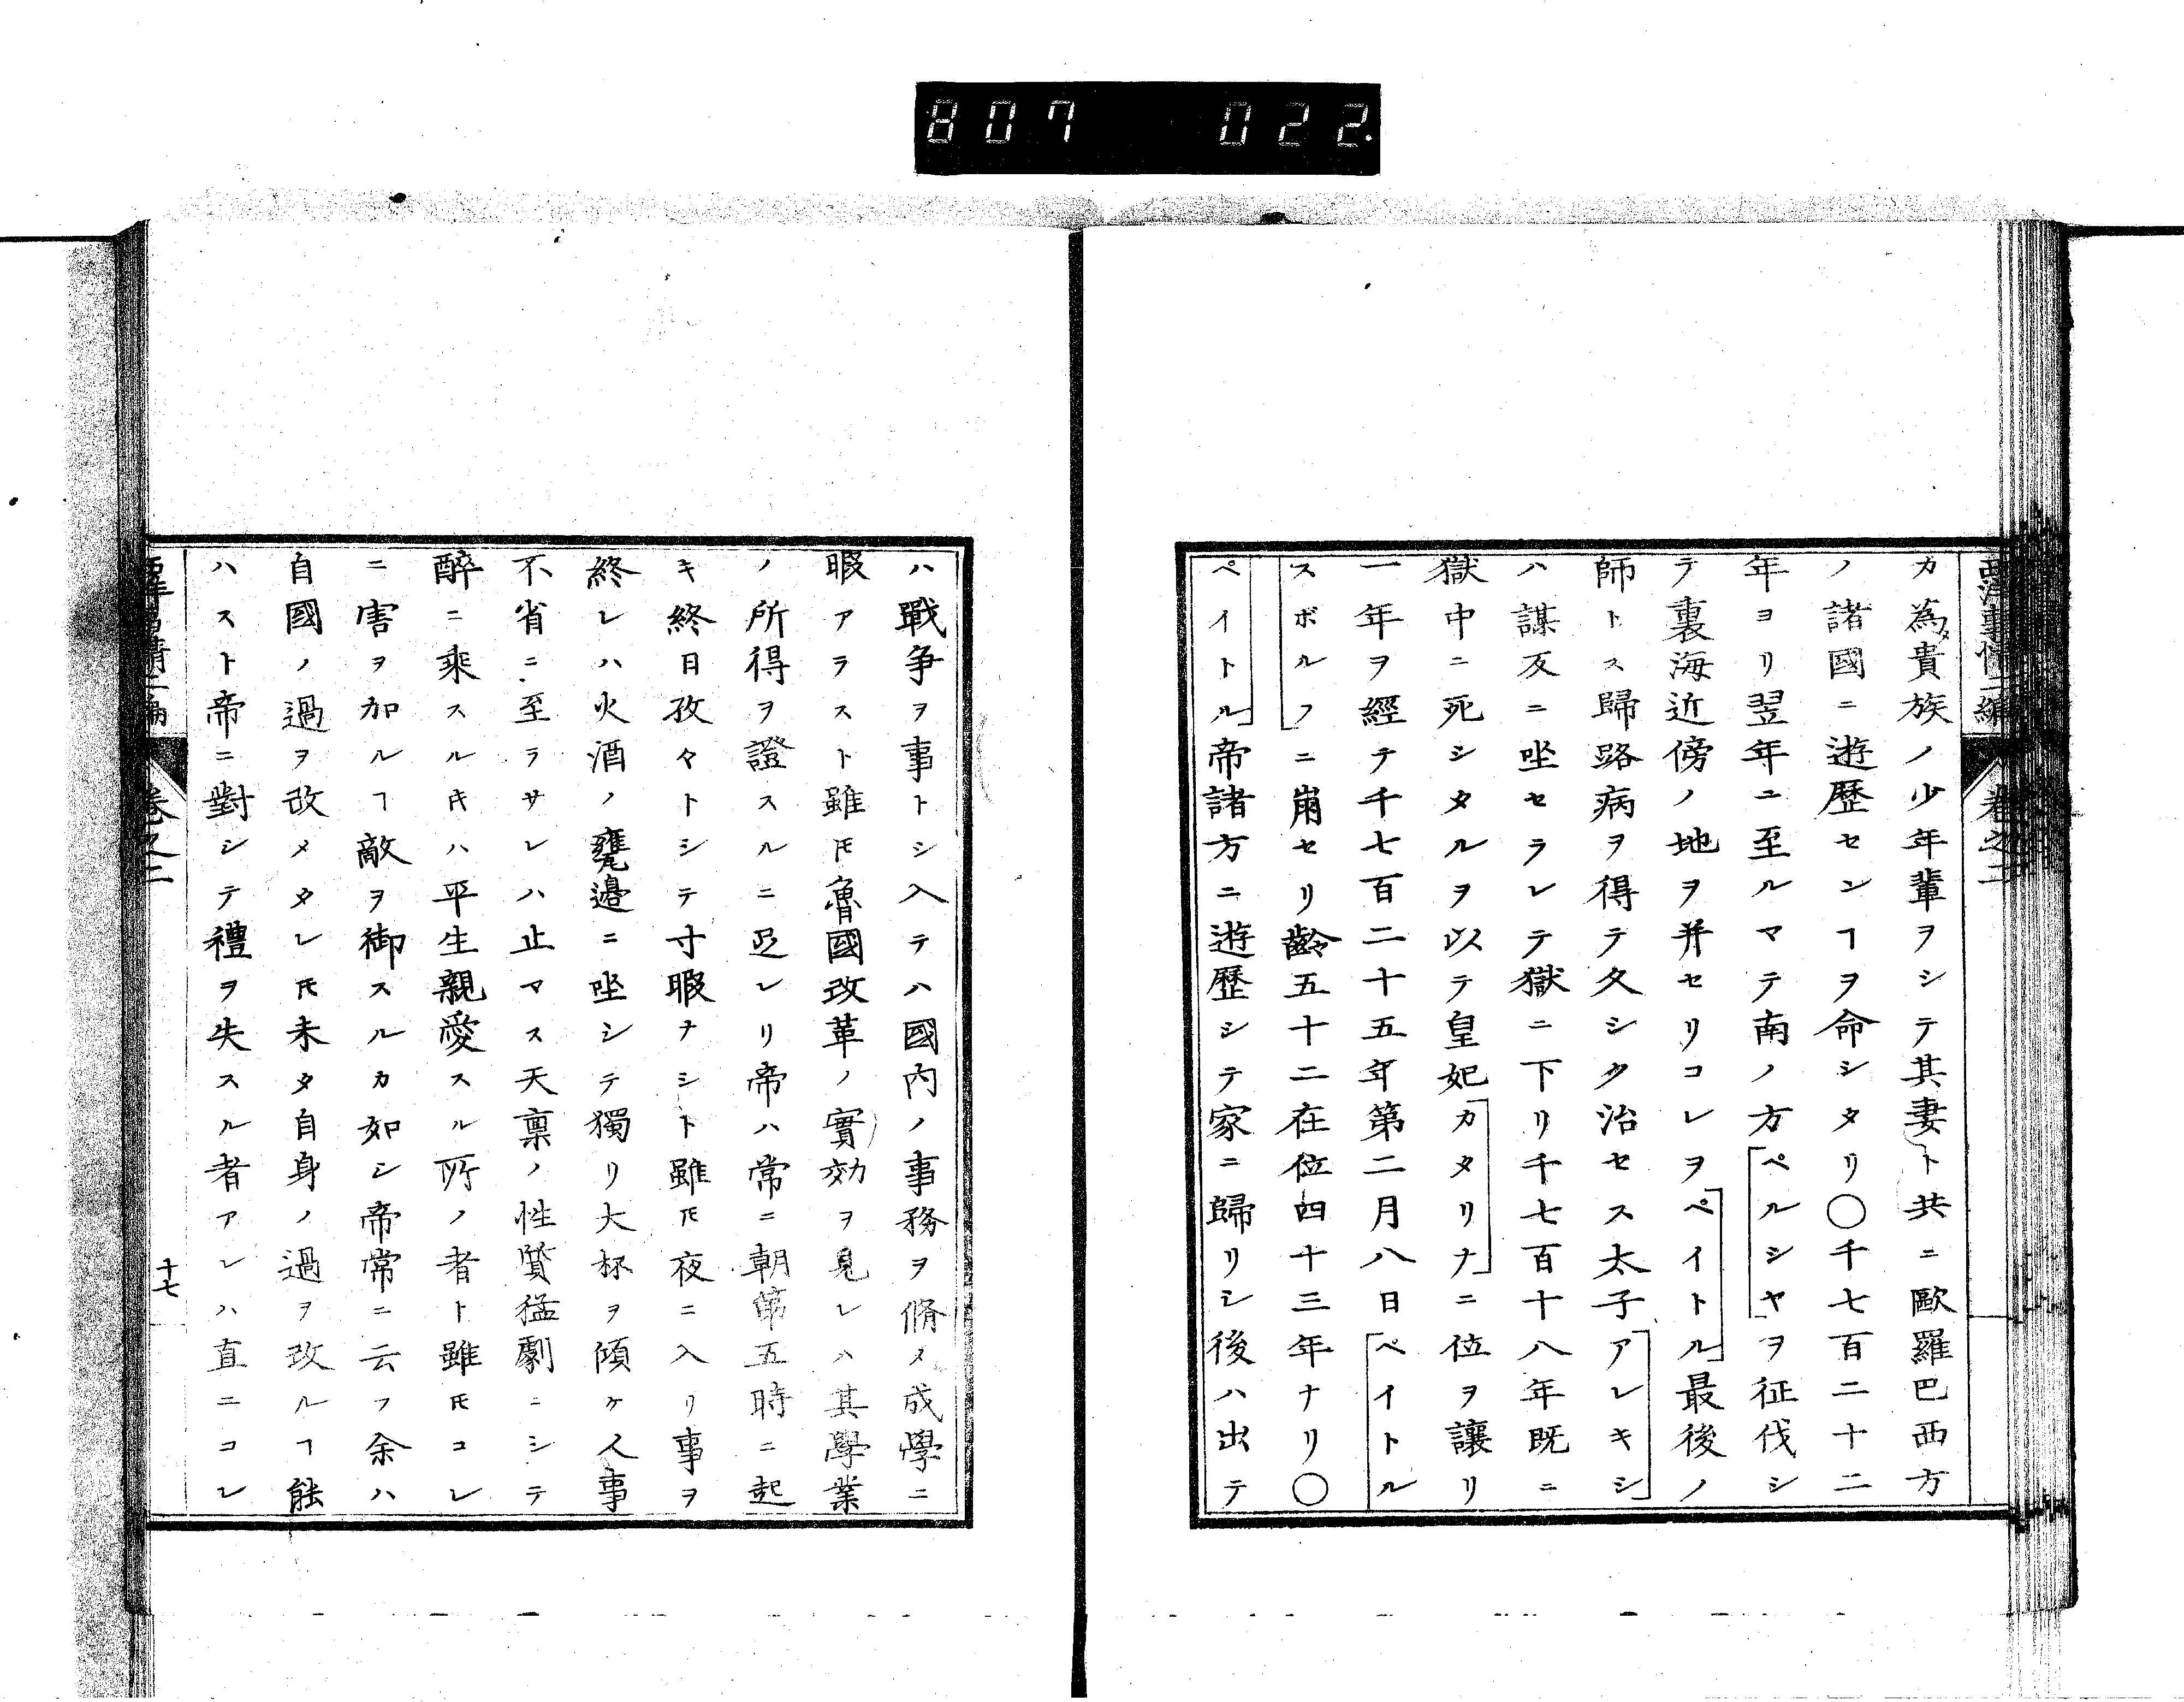 807 022.
西洋事情二編 卷之二
カ為メ貴族ノ少年輩ヲシテ其妻ト共ニ歐羅巴西方
ノ諸國ニ遊歷センヿヲ命シタリ〇千七百二十二
年ヨリ翌年ニ至ルマテ南ノ方「ペルシヤヲ征伐シ
テ裏海近傍ノ地ヲ并セリコレヲ「ペイトル」最後ノ
師トス歸路病ヲ得テ久シク治セス太子「アレキシ」
ハ謀反ニ坐セラレテ獄ニ下リ千七百十八年既ニ
獄中ニ死シタルヲ以テ皇妃「カタリナ」ニ位ヲ讓リ
一年ヲ經テ千七百二十五年第二月八日「ペイトル
スボルフニ崩セリ齡五十二在位四十三年ナリ〇
「ペイトル」帝諸方ニ遊歷シテ家ニ歸リシ後ハ出テ
ハ戰争ヲ事トシ入テハ國內ノ事務ヲ脩メ成學ニ
暇アラスト雖𪜈魯國改革ノ實効ヲ見レハ其學業
ノ所得ヲ證スルニ足レリ帝ハ常ニ朝第五時ニ起
キ終日孜々トシテ寸暇ナシト雖𪜈夜ニ入リ事ヲ
終レハ火酒ノ甕邊ニ坐シテ獨リ大杯ヲ傾ケ人事
不省ニ至ラサレハ止マス天稟ノ性質猛劇ニシテ
醉ニ乘スルキハ平生親愛スル所ノ者ト雖𪜈コレ
ニ害ヲ加ルヿ敵ヲ御スルカ如シ帝常ニ云フ余ハ
自國ノ過ヲ改メタレ𪜈未タ自身ノ過ヲ改ルヿ能
ハスト帝ニ對シテ禮ヲ失スル者アレハ直ニコレ
西洋事情二編 卷之二 十七